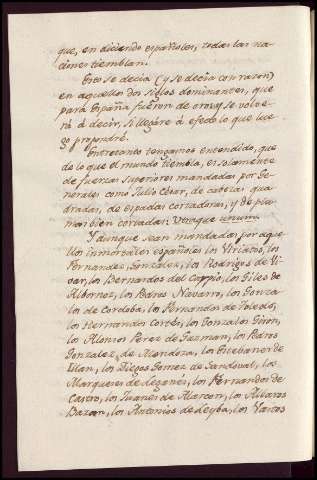 que, en diciendo españoles, todas las na-
ciones tiemblan.
Esto se decia (y se decia con razon)
en aquellos dos siglos dominantes, que
para España fueron de oro; y se volve-
rá á decir, si llegáre á efecto lo que lue-
go propondré.
Entretanto tengamos entendido, que
de lo que el mundo tiembla, es solamente
de fuerzas superiores mandadas por Ge-
nerales como Julio César, de cabezas qua-
dradas, de espadas cortadoras, y de plu-
mas bien cortadas: Utraque unum.
Y aunque sean mandadas por aque-
llos inmortales españoles los Viriatos, los
Fernandez Gonzalez, los Rodrigos de Vi-
var, los Bernardos del Carpio, los Giles de
Albornoz, los Pedros Navarro, los Gonza-
los de Cordoba, los Fernandos de Toledo,
los Hernandos Cortés, los Gonzalos Giron,
los Alonsos Perez de Guzman, los Pedros
Gonzalez de Mendoza, los Estebanes de
Illan, los Diegos Gomez de Sandoval, los
Marqueses de Leganés, los Fernandos de
Castro, los Juanes de Alarcon, los Alvaros
Bazan, los Antonios de Leyba, los Vascos